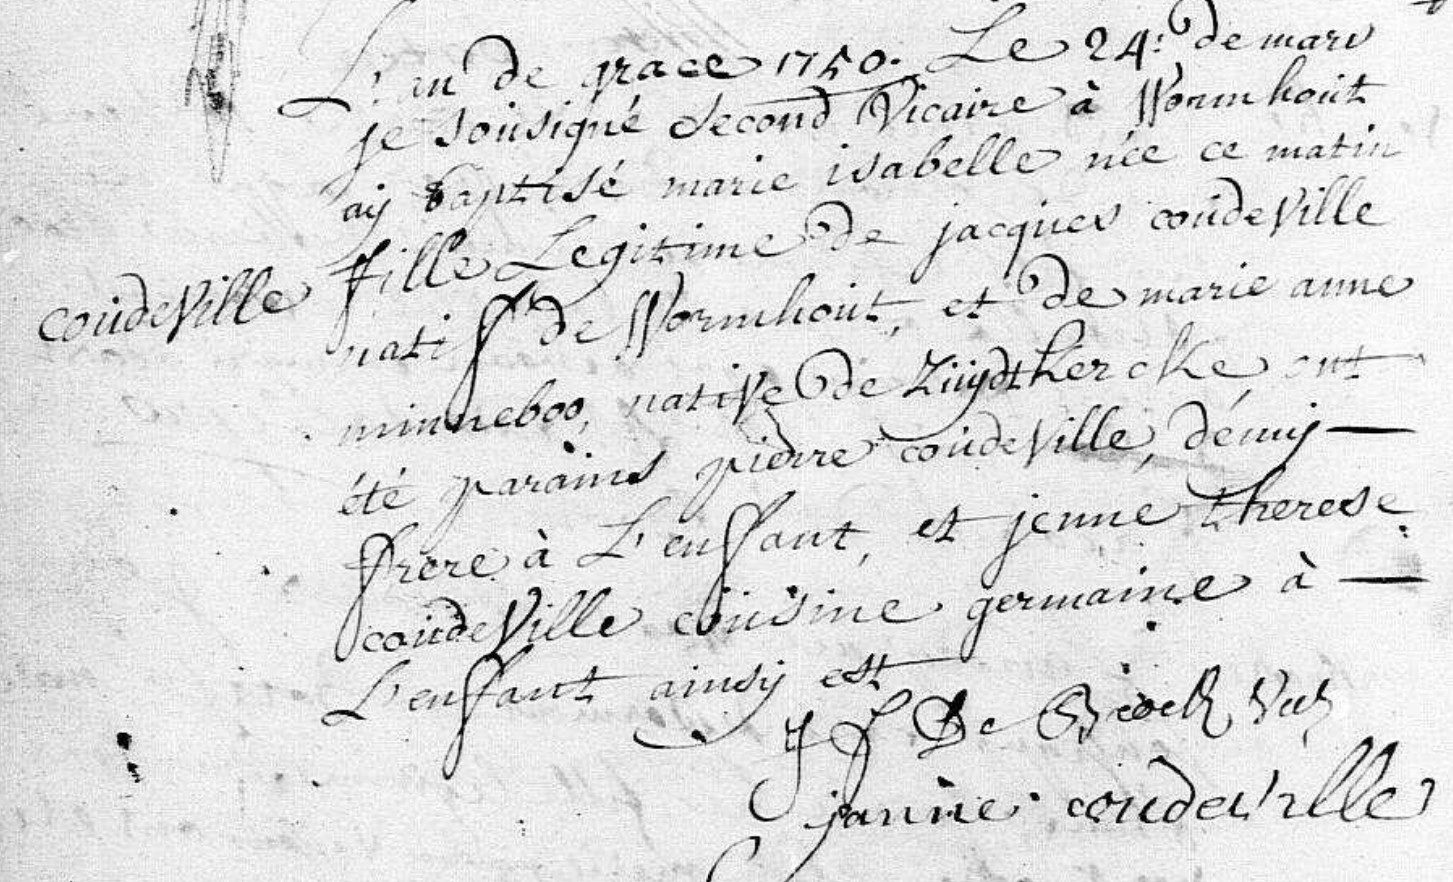 L'an de grace 1750. Le 24: de mars
je sousigné second Vicaire à Wormhout
aÿ baptisé marie isabelle née ce matin
fille Legitime de jacques coudeville
coudeville
natif de Wormhout, et de marie anne
minneboo, native de Zuÿdthercke, ont
été parains pierre coudeville, démÿ —
frere à L'enfant, et jenne therese
coudeville cousine germaine à —
L'enfant ainsÿ est
J f De Brock
janne coudeville